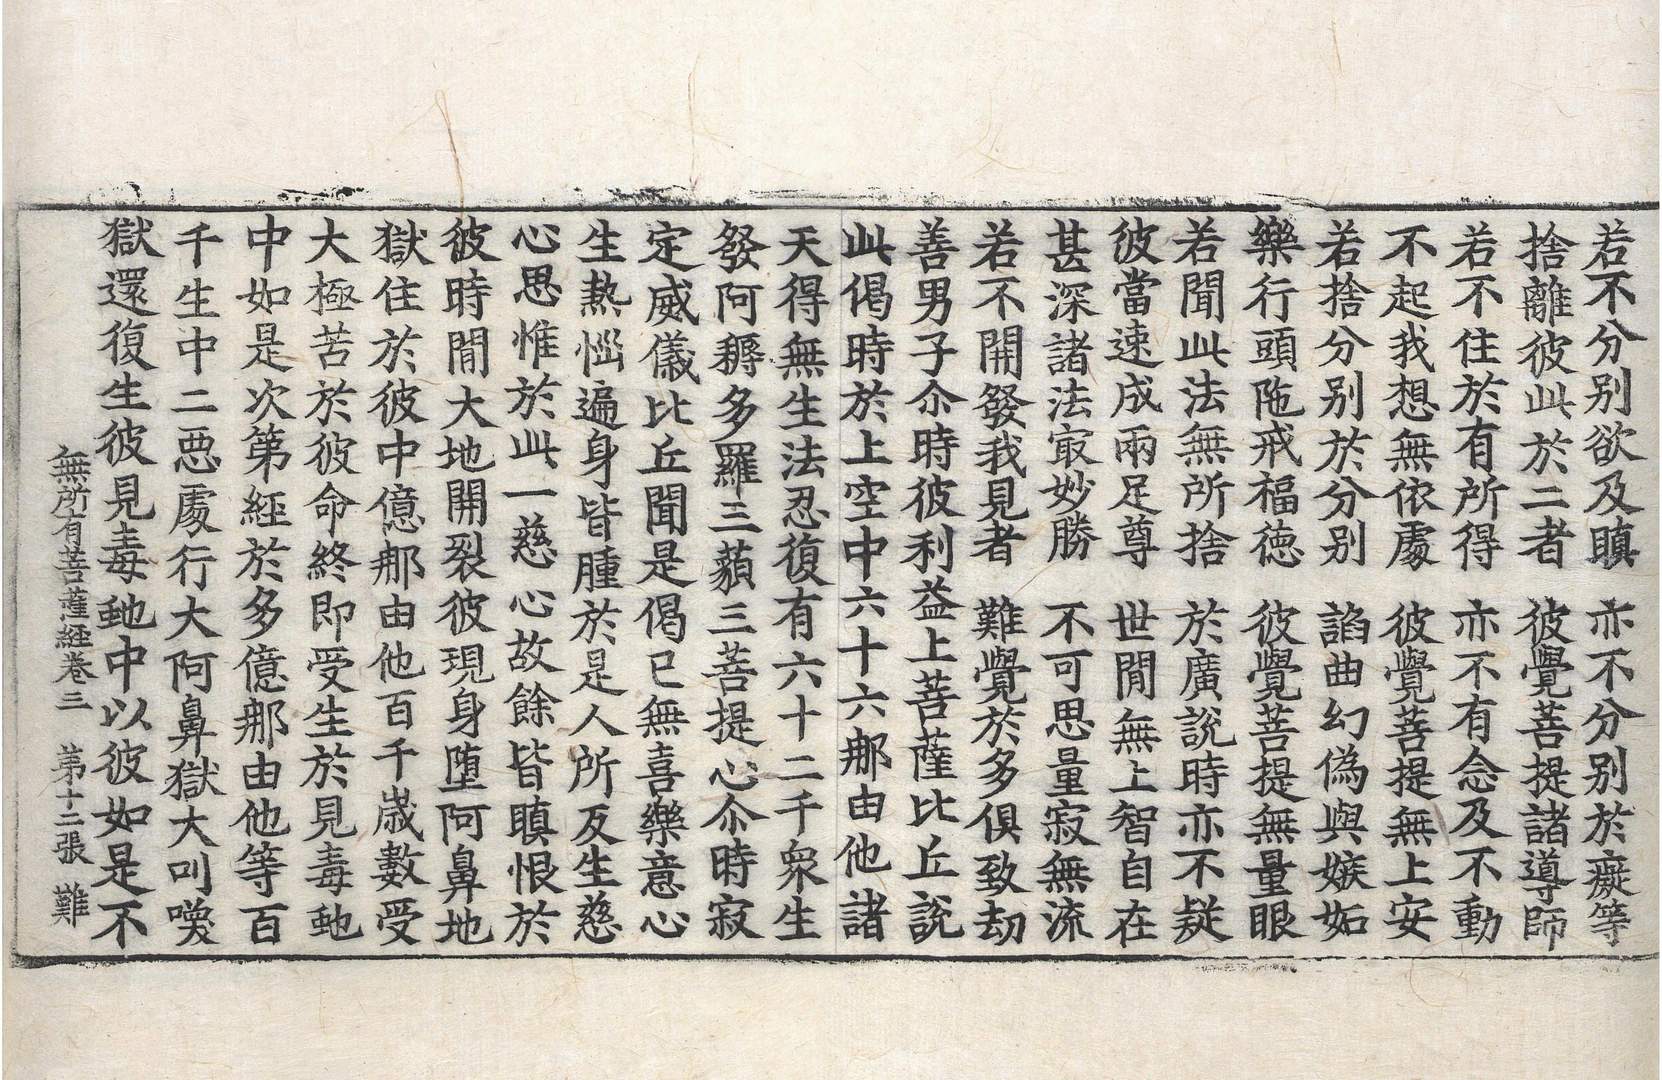 若不分別欲及瞋　亦不分別於癡等
捨離彼此於二者　彼覺菩提諸導師
若不住於有所得　亦不有念及不動
不起我想無依處　彼覺菩提無上安
若捨分別於分別　諂曲幻偽與嫉妬
樂行頭陁戒福徳　彼覺菩提無量眼
若聞此法無所捨　於廣說時亦不疑
彼當速成兩足尊　世閒無上智自在
甚深諸法㝡妙勝　不可思量寂無流
若不開發我見者　難覺於多俱致劫
善男子尒時彼利益上菩薩比丘說
此偈時於上空中六十六那由他諸
天得無生法忍復有六十二千衆生
發阿耨多羅三藐三菩提心尒時寂
定威儀比丘聞是偈已無喜樂意心
生熱惱遍身皆腫於是人所及生慈
心思惟於此一慈心故餘皆瞋恨於
彼時閒大地開裂彼現身墮阿鼻地
獄住於彼中億那由他百千歲數受
大極苦於彼命終即受生於見毒虵
中如是次第經於多億那由他等百
千生中二惡處行大阿鼻獄大叫喚
獄還復生彼見毒虵中以彼如是不
無所有菩薩經卷三　第十二張　難